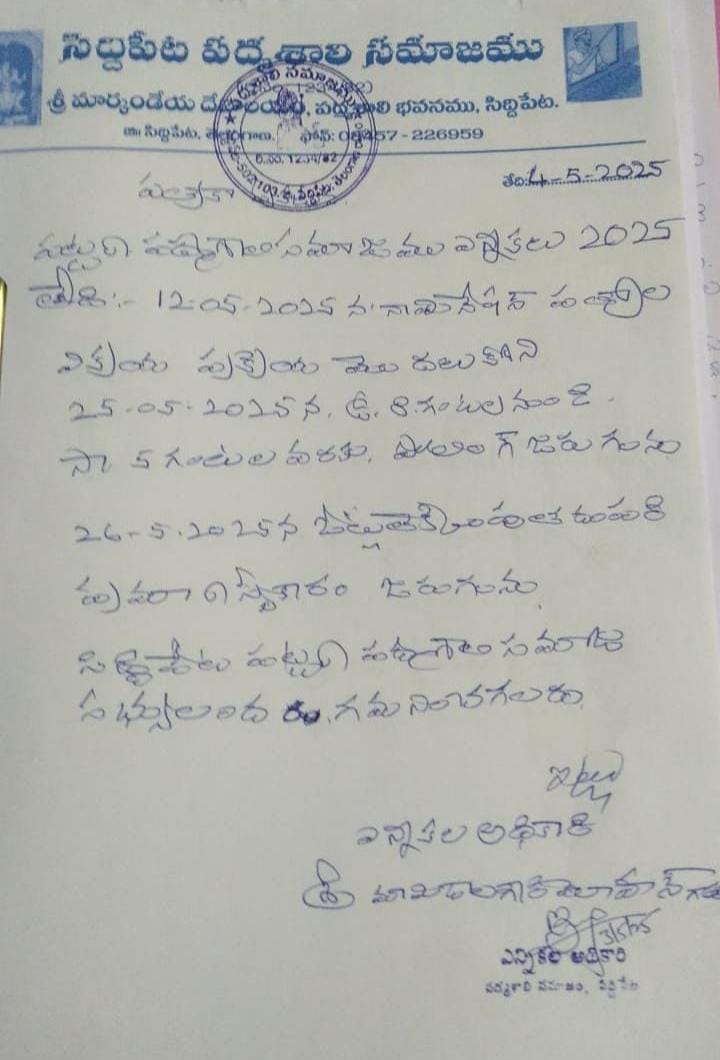 సిద్దిపేట పద్మశాలి సమాజము
శ్రీ మార్కండేయ దేవాలయం, పద్మశాలి భవనము, సిద్దిపేట.
సిద్దిపేట, తెలంగాణ. ఫోన్: 08457 - 226959
తేది: 4-5-2025
పత్రిక
పట్టణ పద్మశాలి సమాజము ఎన్నికలు 2025
తేది:- 12-05-2025 న నామినేషన్ పత్రాల
విక్రయ ప్రక్రియ మొదలుకొని
25-05-2025న, ఉ. 8.గంటల నుండి.
సా 5 గంటల వరకు, పోలింగ్ జరుగును
26-5-2025న ఓట్ల లెక్కింపు తదుపరి
ప్రమాణ స్వీకారం జరుగును
సిద్దిపేట పట్టణ పద్మశాలి సమాజ
సభ్యులందరు, గమనించగలరు.
ఇట్లు
ఎన్నికల అధికారి
శ్రీ
ఎన్నికల అధికారి
పద్మశాలి సమాజం, సిద్దిపేట